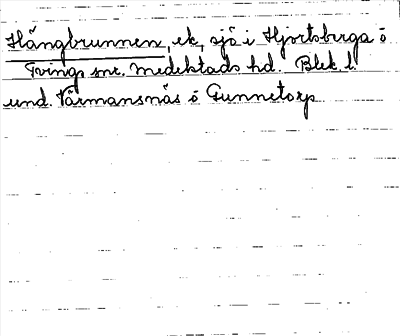 Hångbrunnen, ek, sjö i Hjortsberga o
Tvings snr. Medelstads hd. Blek. l.
und. Värmansnäs o Gunnetorp